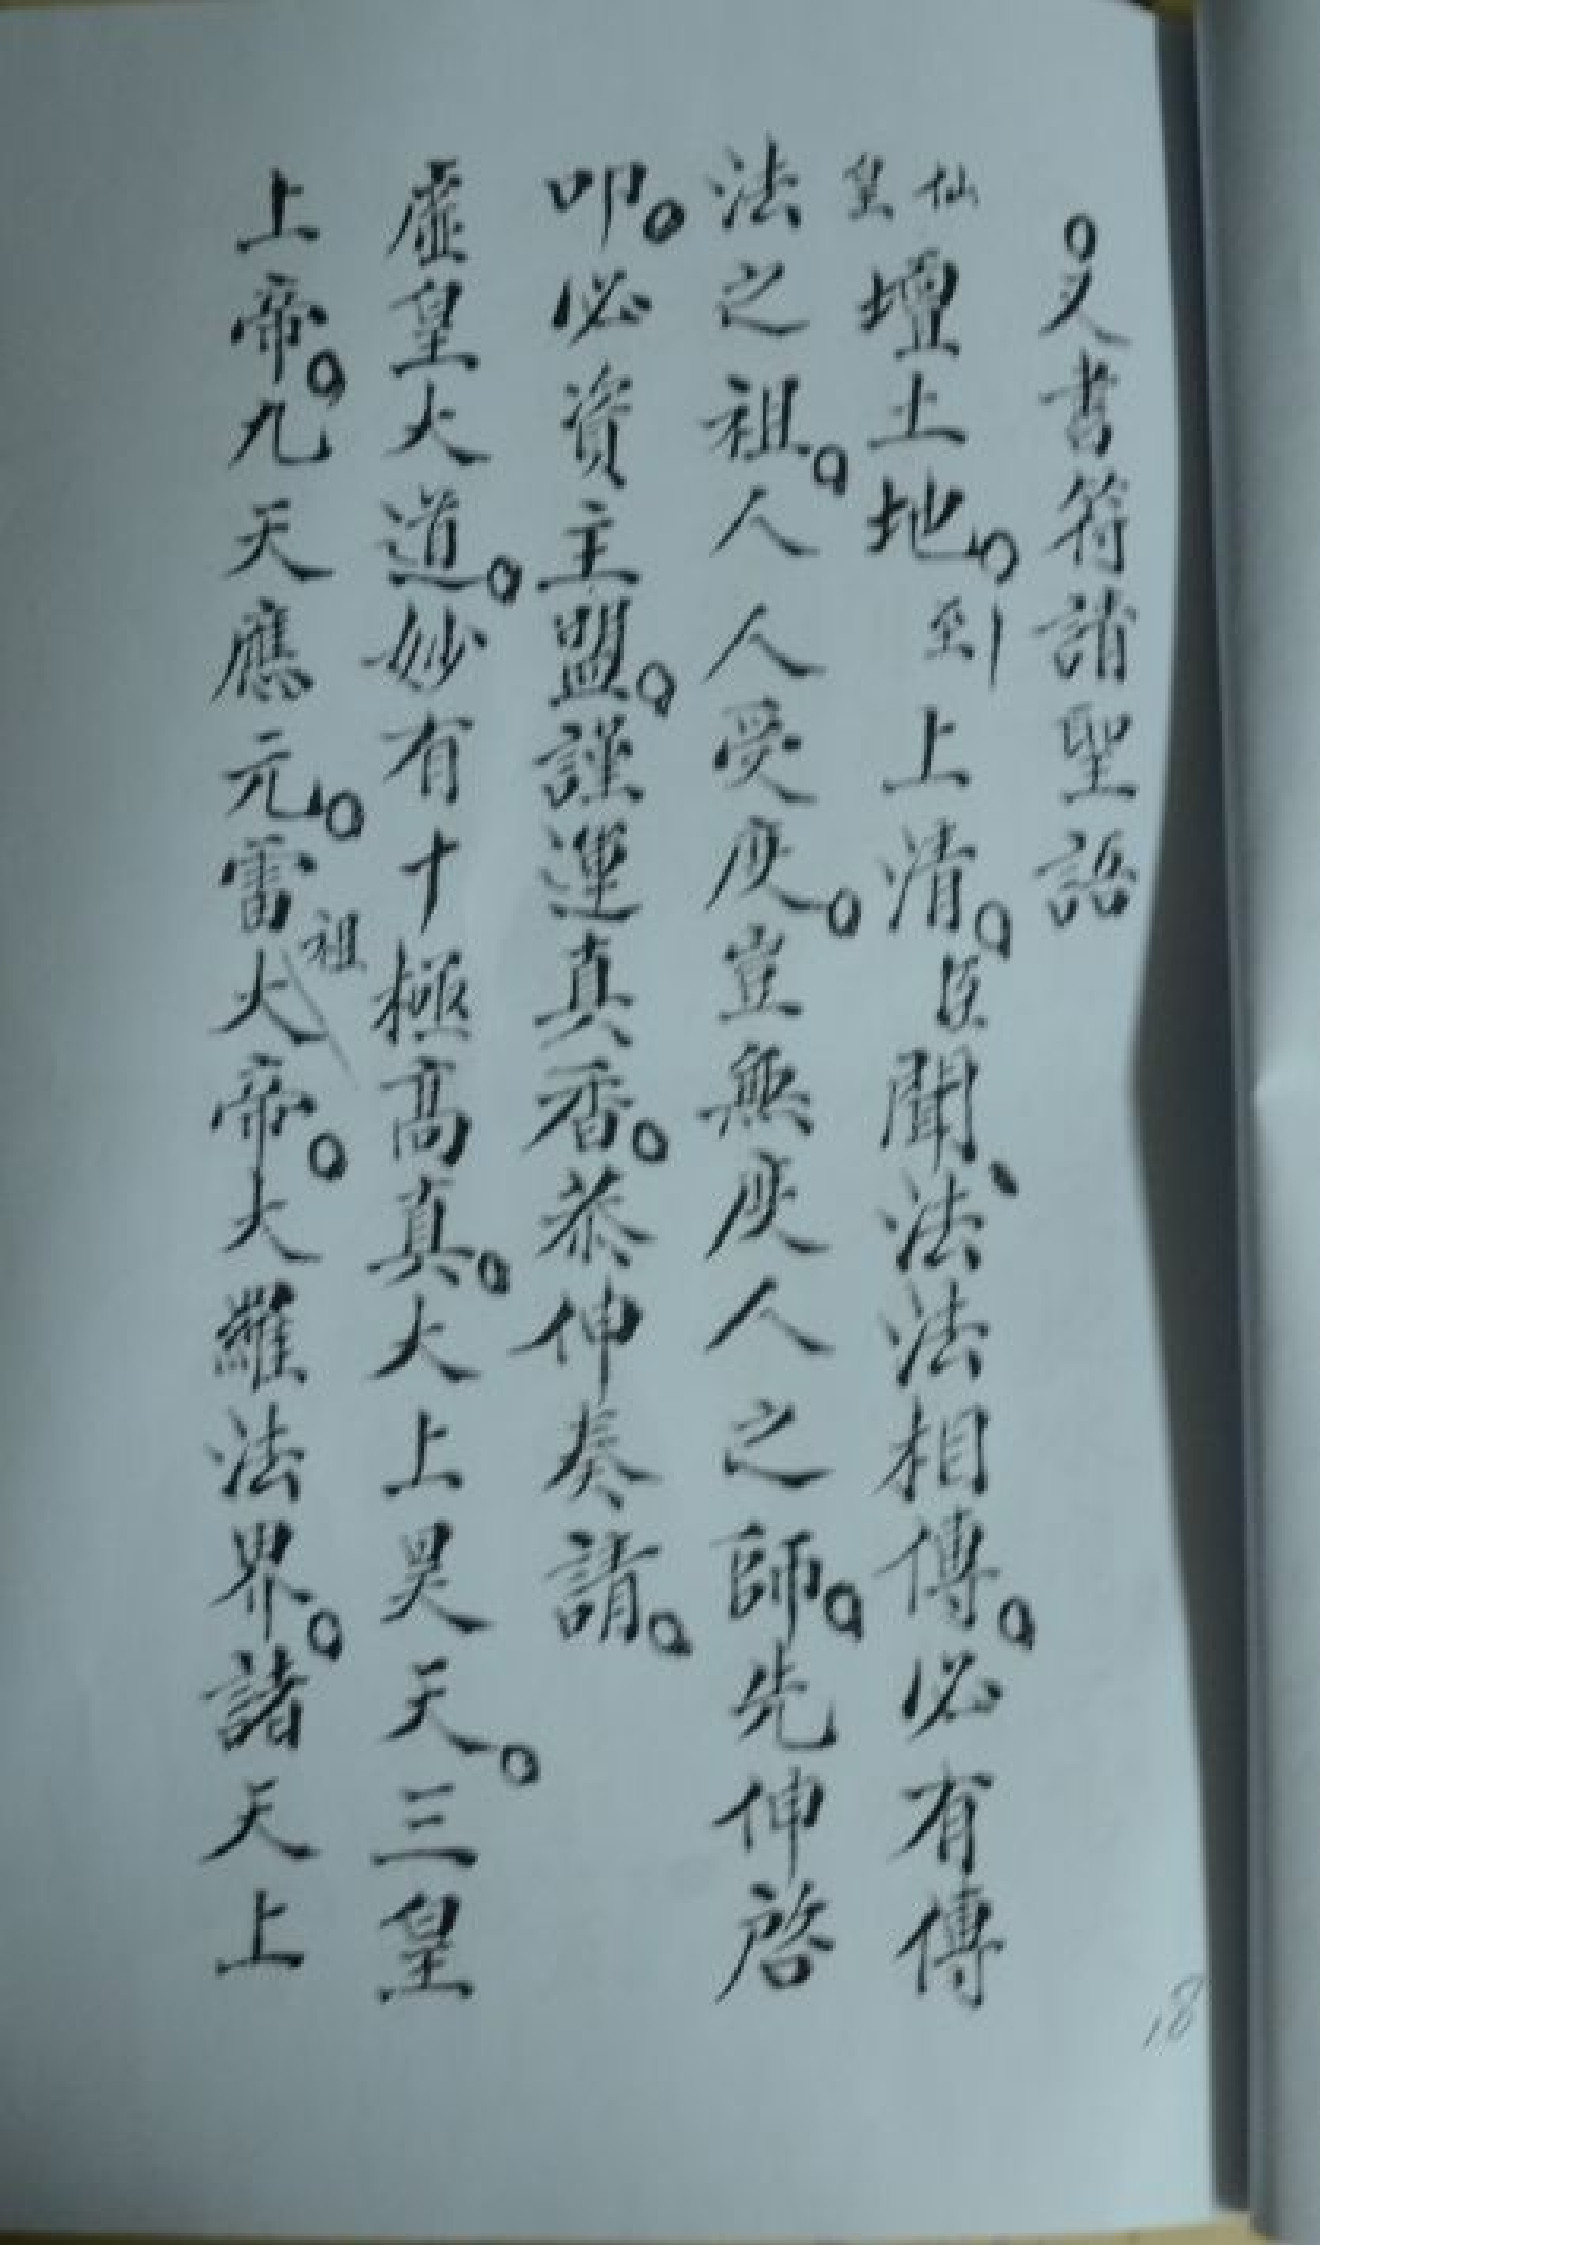 。又書符請聖語
仙皇壇土地。到上清。臣聞、法法相傳。必有傳
法之祖。人人受度。豈無度人之師。先伸啓
叩。必資主盟。謹運真香。恭伸奏請。
虛皇大道。妙有十極高真。大上昊天。三皇
上帝。九天應元。雷祖大帝。大羅法界。諸天上
18